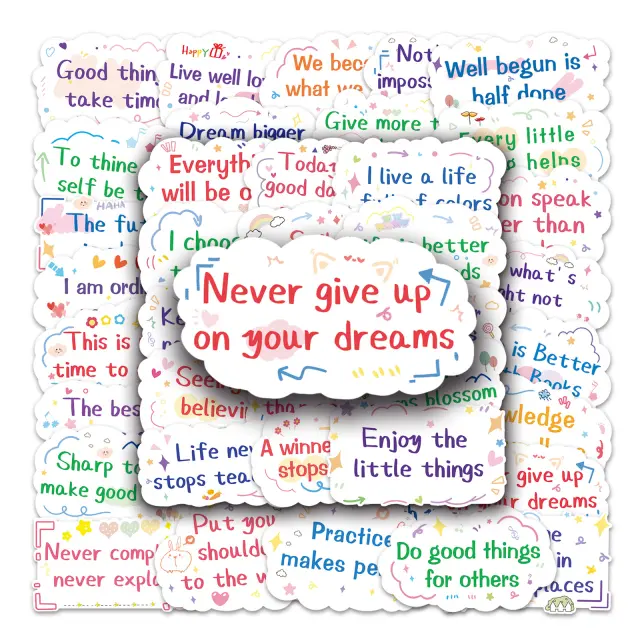 Good thin
take time
Happy
Live well lo
and l
We bec
what we
Not
imposs
Well begun is
half done
Dream bigger
Give more t
Every little
helps
To thine
self be t
Everyth
will be o
Toda
good da
I live a life
full of colors
on speak
er than
HAHA
The fu
I choo
better
ds
what's
ht not
I am ord
Never give up
on your dreams
This is
time to
is Better
Books
The bes
Seein
believi
tha
s blossom
wledge
Sharp to
make good
Life nev
stops tea
A winne
stops
Enjoy the
little things
give up
ur dreams
Never comp
never expla
Put you
shoulde
to the w
Practice
makes pe
Do good things
for others
ne
in
places